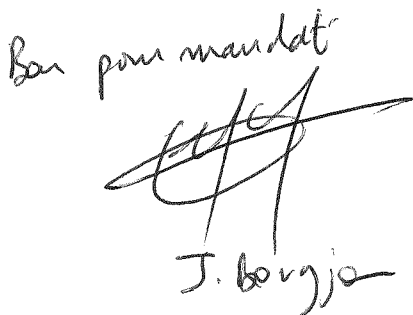 Bon pour mandat
J. Borgjo